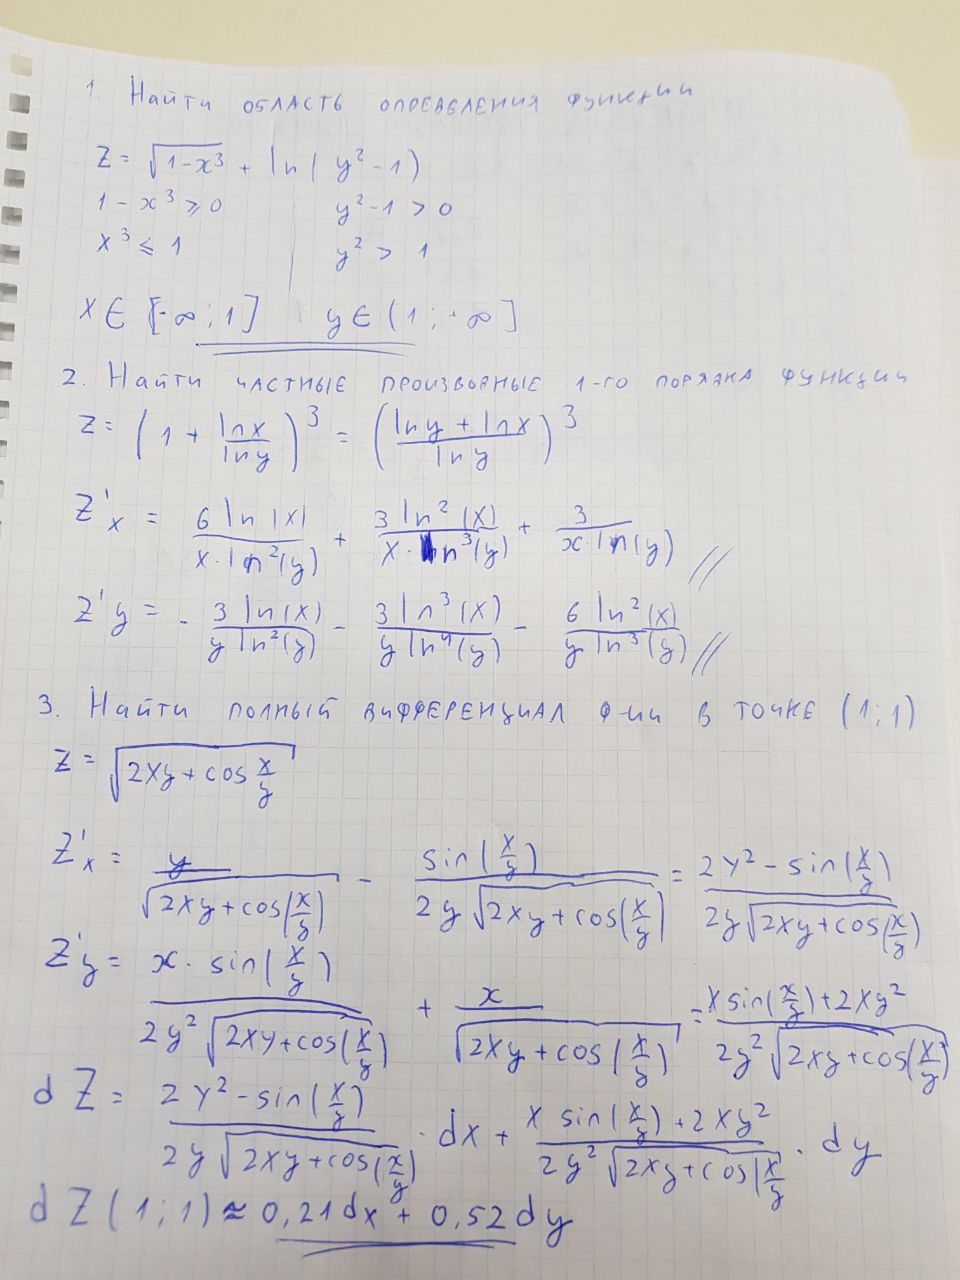 1. Найти область опревления функции
Z = √(1-x³) + ln(y²-1)
1-x³ ⩾ 0    y²-1 > 0
x³ ⩽ 1    y² > 1
x ∈ [-∞; 1]    y ∈ (1; -∞]
2. Найти частные произвояные 1-го порядка функции
Z = (1 + lnx/lny)³ = ((lny + lnx)/lny)³
Z'x = 6 ln(x)/(x·ln²(y)) + 3 ln²(x)/(x·ln³(y)) + 3/(x·ln(y)) //
Z'y = - 3 ln(x)/(y ln²(y)) - 3 ln³(x)/(y ln⁴(y)) - 6 ln²(x)/(y ln³(y)) //
3. Найти полный дифференциал ф-ии в точке (1;1)
Z = √(2xy + cos x/y)
Z'x = y/√(2xy+cos(x/y)) - sin(x/y)/(2y√(2xy+cos(x/y))) = (2y² - sin(x/y))/(2y√(2xy+cos(x/y)))
Z'y = x·sin(x/y)/(2y²√(2xy+cos(x/y))) + x/√(2xy+cos(x/y)) = (x sin(x/y)+2xy²)/(2y²√(2xy+cos(x/y)))
dZ = (2y² - sin(x/y))/(2y√(2xy+cos(x/y))) · dx + (x sin(x/y)+2xy²)/(2y²√(2xy+cos(x/y))) · dy
dZ(1;1) ≈ 0,21dx + 0,52dy